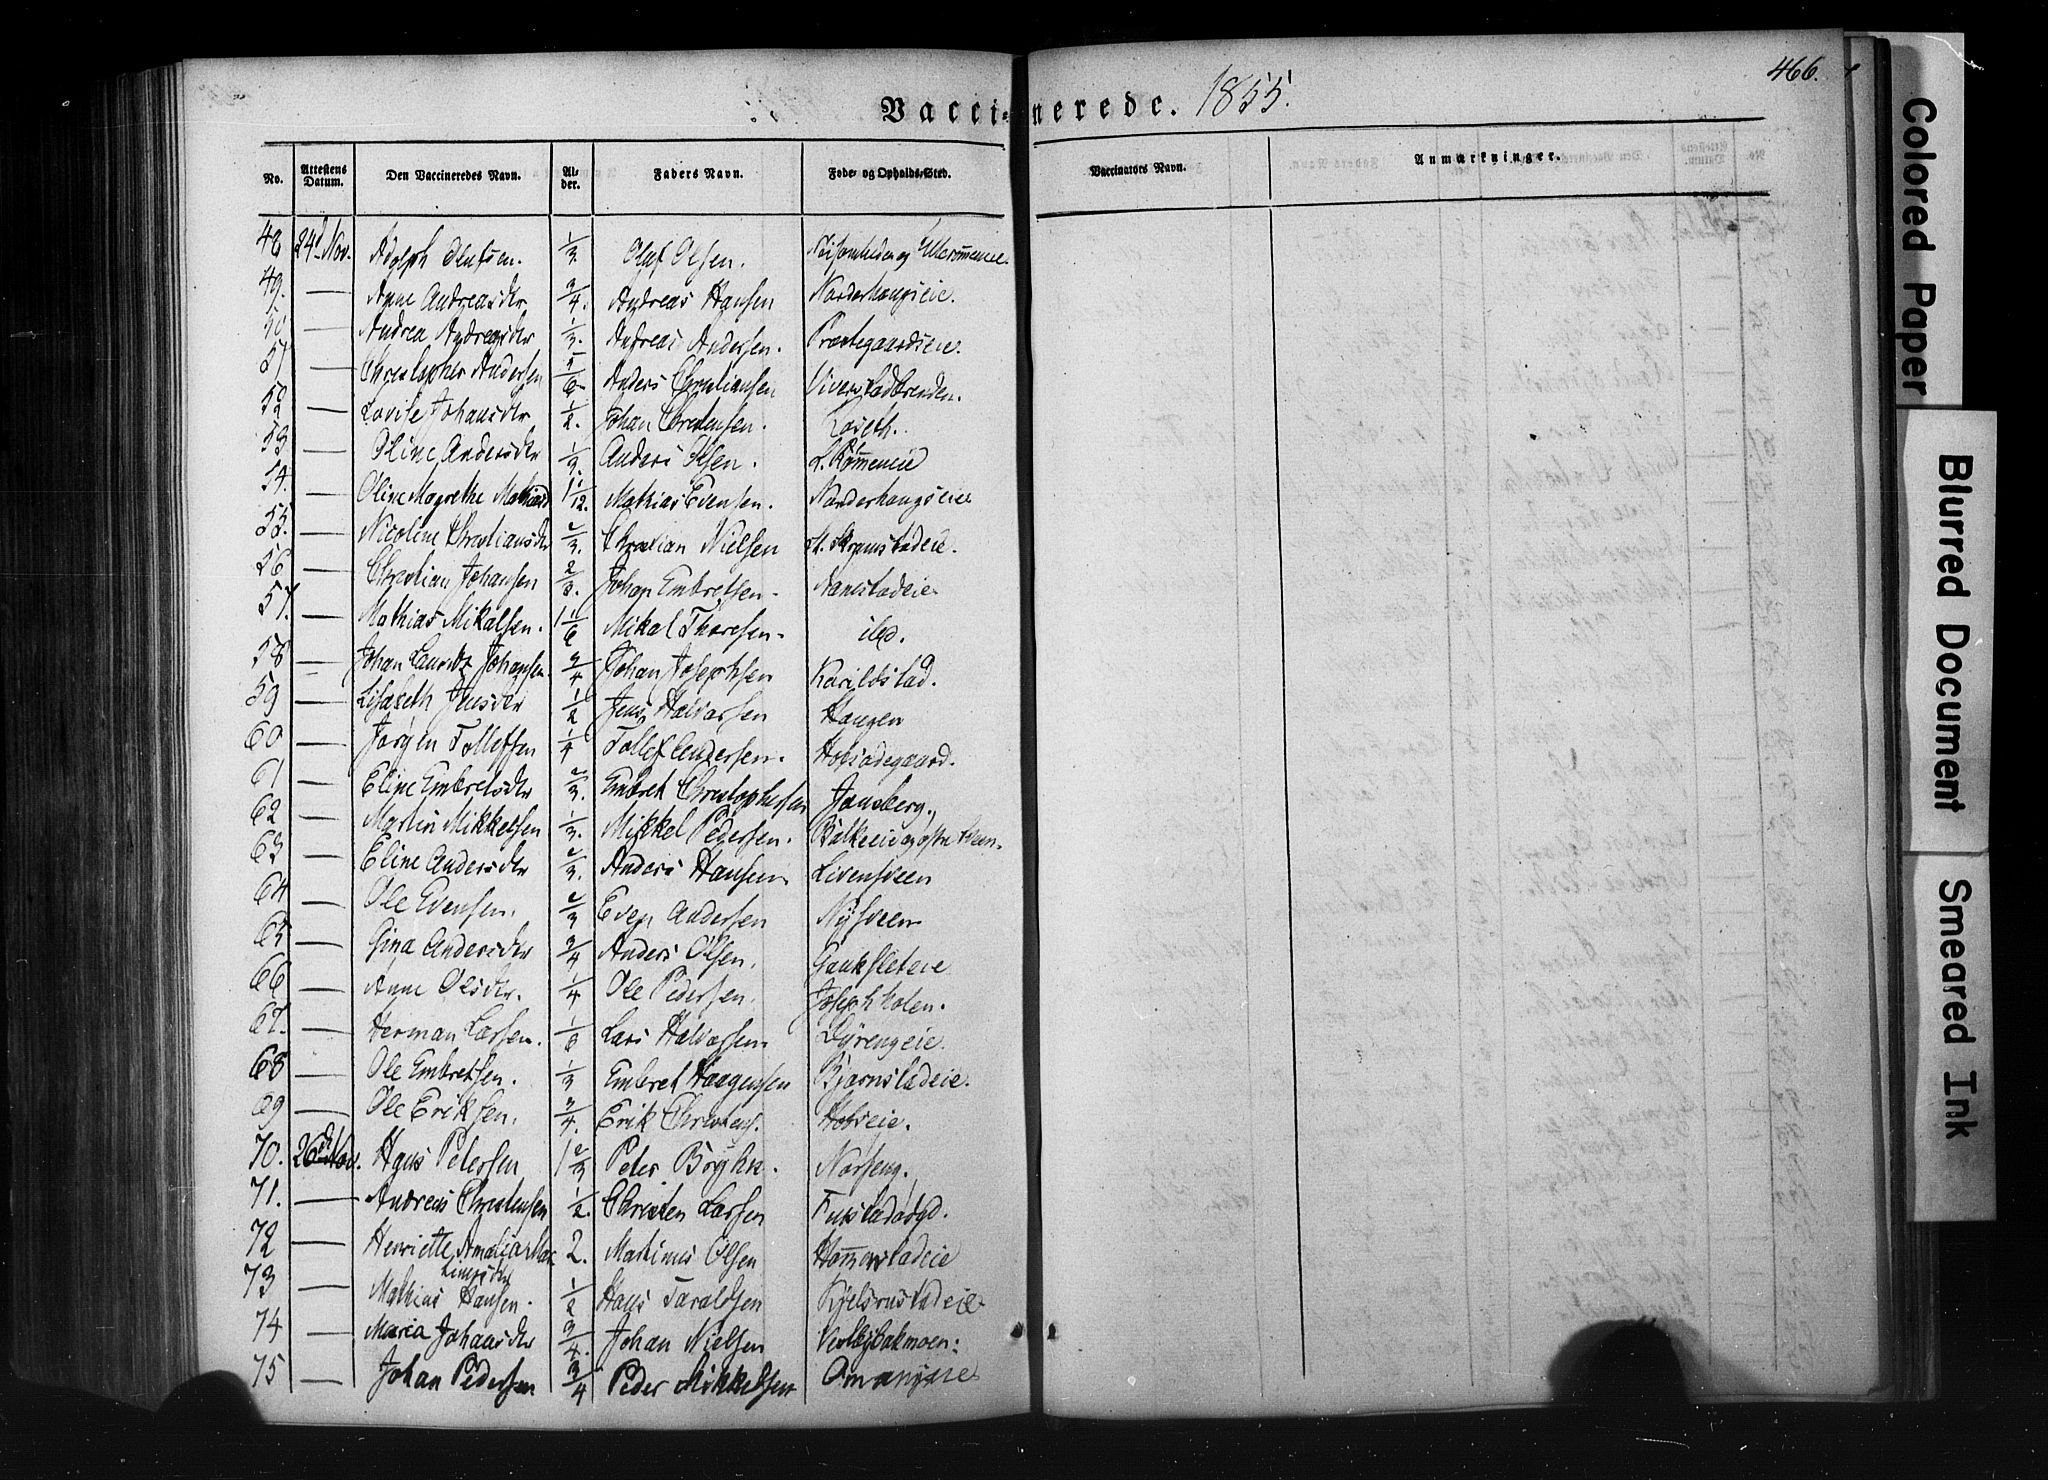 466.
Vaccinerede. 1855.
No. Attestens Datum. Den Vaccineredes Navn. Al- der. Faders Navn. Føde- og Opholds-Sted. Vaccinators Navn. Anmærkninger.
48 24d Nov. Adolph Olufsen. 1/3 Oluf Olsen.
49. — Anne Andreasdtr 3/4. Andreas Hansen Norderhaugseie.
50 — Andrea Andreasdtr 1/3. Andreas Andersen. Præstegaardseie.
51 — Christopher Andersen 5/6 Anders Christiansen
52 — Lovise Johansdtr 1/2. Johan Christensen. Koseth.
53 — Oline Andersdtr 1/3. Anders Olsen. L. Rømmeneie
54. — Oline Magrethe Mathiasd 1 1/12. Mathias Evensen. Norderhaugseie
55. — Nicoline Christiansdtr 2/3. Christian Nielsen St. Skramstadeie.
56 — Christian Johansen 2/3. Johan Embretsen.
57. — Mathias Mikalsen. 1 1/6 Mikal Thoresen. ibd.
58 — Johan Lauritz Johansen. 3/4 Johan Josephsen Karildstad.
59 — Lisabeth Jensdtr 1/2 Jens Halvorsen Haugen
60 — Jørgen Tollefsen 1/4 Tollef Andersen.
61 — Eline Embretsdtr 2/3. Embret Christophersen Jønsberg.
62 — Martin Mikkelsen 1/3. Mikkel Pedersen.
63 — Eline Andersdtr 2/3. Anders Hansen. Livensveen
64 — Ole Evensen. 2/3 Even Andersen Nysveen
65 — Gina Andersdtr 3/4 Anders Olsen. Gaukseteie
66 — Anne Olsdtr. 1/4 Ole Pedersen. Josephholen.
67. — Herman Larsen. 1/6 Lars Halvorsen. Dyrengeie.
68 — Ole Embretsen. 1/3 Embret Haagensen Bjørnstadeie.
69 — Ole Eriksen. 3/4. Erik Christens. Hofseie.
70. 26d Nov. Hans Petersen 1 2/3 Peter Norseng.
71. — Andreas Christensen 1/2. Christen Larsen
72 — Henriette Amalia Mar- 2. Martinus Olsen Hommerstadeie
tinusdtr
73 — Mathias Hansen. 1/2 Hans Taraldsen Kjelsrustadeie
74 — Maria Johansdtr 3/4. Johan Nielsen Vestbybakmoen.
75 — Johan Pedersen 3/4 Peder Mikkelsen
Colored Paper
Blurred Document
Smeared Ink